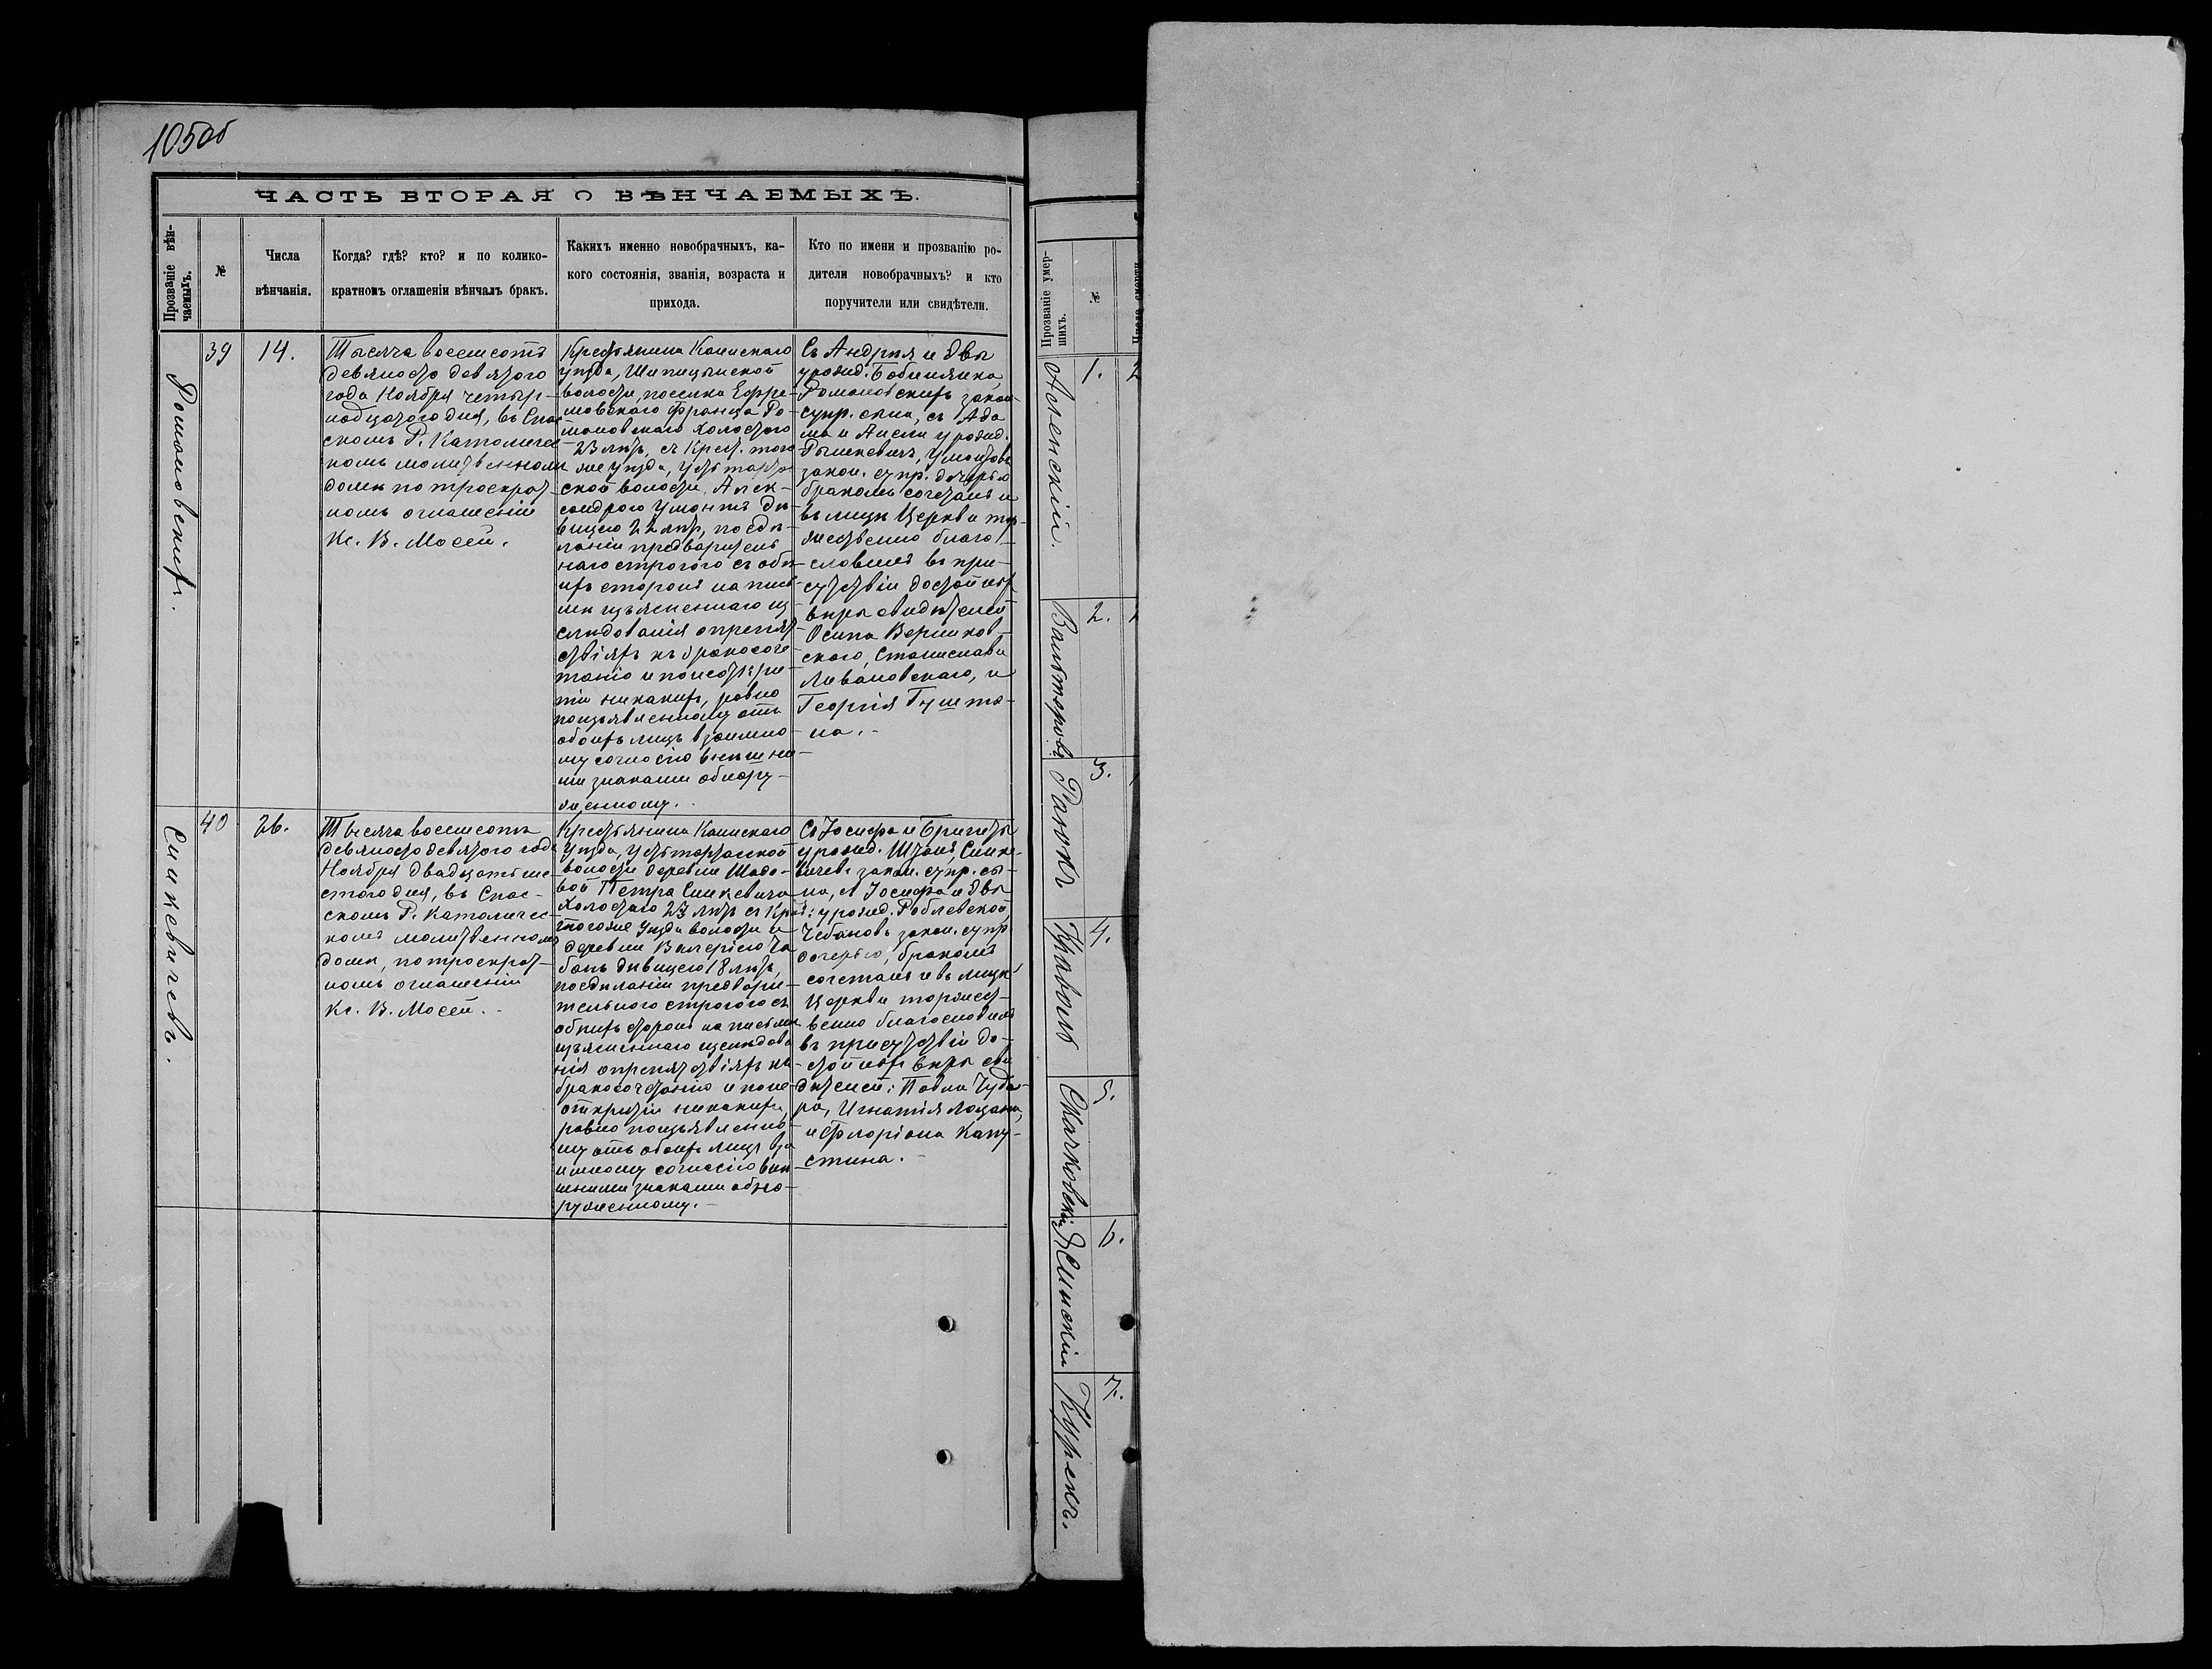 105об
ЧАСТЬ ВТОРАЯ О ВѢНЧАЕМЫХЪ.
Прозваніе вѣн-
чаемыхъ.
№
Числа
вѣнчанія.
Когда? гдѣ? кто? и по колико-
кратномъ оглашеніи вѣнчалъ бракъ.
Какихъ именно новобрачныхъ, ка-
кого состоянія, званія, возраста и
прихода.
Кто по имени и прозванію ро-
дители новобрачныхъ? и кто
поручители или свидѣтели.
Романовскихъ.
39
14.
Тысяча восемсотъ
девяносто девятого
года Ноября четыр-
надцатого дня, въ Спас
скомъ Р. Католичес
комъ молитвенномъ
домѣ по троекрат-
номъ оглашеніи
Кс. В.Мосей.
Крестьянина Каинскаго
уѣзда, Шипицынской
волости, поселка Ефре-
мовскаго Франца Ро-
мановскаго холостого
23 лѣтъ, съ Крест. того
же уѣзда, Устьтартас-
ской волости, Алек-
сандрою Умонтъ дѣ-
вицею 22 лѣтъ, по сдѣ-
ланіи предваритель
наго строгого съ обѣ-
ихъ сторонъ на пись-
мѣ изъясненнаго из
слѣдованія о препят
ствіяхъ къ бракосоче
танію и по неоткры-
тіи никакихъ, равно
по изъявленному отъ
обоихъ лицъ взаимно-
му согласію внѣшни-
ми знаками обнару-
женному.
Съ Андрея и Эвы
урожд.
Романовскихъ закон-
супр. сына, съ Ада
ма и урожд.
закон. супр. дочерью
бракомъ сочеталъ и
въ лицѣ Церкви тор-
жественно благо-
словилъ въ при-
сутствіи достойныхъ
вѣры свидѣтелей
Осипа
скаго, Станислава
Ливановскаго, и
Георгія
на.
Синкевичевъ.
40
26.
Тысяча восемсотъ
девяносто девятого года
Ноября двадцать ше-
стого дня, въ Спас-
скомъ Р. Католичес-
комъ молитвенномъ
домѣ, по троекрат-
номъ оглашеніи
Кс. В. Мосей.
Крестьянина Каинскаго
уѣзда, Устьтартасской
волости деревни
Петра Синкевича
холостаго 23 лѣтъ съ Крест.
того же уѣзда волости и
деревни Валеріею Че
банъ дѣвицею 18 лѣтъ,
по сдѣланіи предвари-
тельного строгого съ
обѣихъ сторонъ на письмѣ
изъясненнаго изслѣдова
нія о препятствіяхъ къ
бракосочетанію и по не-
открытіи никакихъ,
равно по изъявленно-
му отъ обоихъ лицъ вза
имному согласію внѣ
шними знаками обна-
руженному.
Съ Іосифа и Бригиды
урожд. Синке-
вичевъ закон. супр. сы-
на, съ Іосифа и Эвы
урожд.
Чебановъ закон. супр
дочерью, бракомъ
сочеталъ и въ лицѣ
Церкви торжест-
венно благословилъ
въ присутствіи до-
стойныхъ вѣры сви
дѣтелей: Павла
ра, Игнатія
и Флоріана Капу-
стина.
Прозваніе умер-
шихъ.
№
Числа смерти
1.
2.
3.
4.
Кроволь
5.
6.
7.
Курекъ.